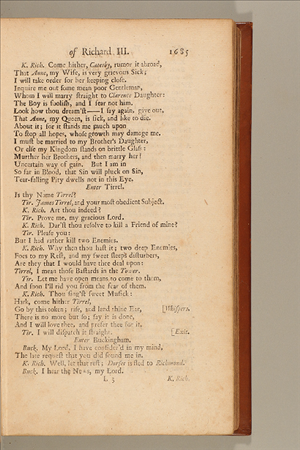 of Richard III. 1685
K. Rich. Come hither, Catesby, rumor it abroad,
That Anne, my Wife, is very grievous Sick;
I will take order for her keeping close.
Inquire me out some mean poor Gentleman,
Whom I will marry straight to Clarence Daughter:
The Boy is foolish, and I fear not him.
Look how thou dream'st——I say again, give out,
That Anne, my Queen, is sick, and like to die.
About it; for it stands me much upon
To stop all hopes, whose growth may damage me.
I must be married to my Brother's Daughter,
Or else my Kingdom stands on brittle Glass:
Murther her Brothers, and then marry her!
Uncertain way of gain. But I am in
So far in Blood, that Sin will pluck on Sin,
Tear-falling Pity dwells not in this Eye.
Enter Tirrel.
Is thy Name Tirrel?
Tir. James Tirrel, and your most obedient Subject.
K. Rich. Art thou indeed?
Tir. Prove me, my gracious Lord.
K. Rich. Dar'st thou resolve to kill a Friend of mine?
Tir. Please you:
But I had rather kill two Enemies.
K. Rich. Why then thou hast it; two deep Enemies,
Foes to my Rest, and my sweet sleep's disturbers,
Are they that I would have thee deal upon:
Tirrel, I mean those Bastards in the Tower.
Tir. Let me have open means to come to them,
And soon I'll rid you from the fear of them.
K. Rich. Thou sing'st sweet Musick:
Hark, come hither Tirrel,
Go by this token; rise, and lend thine Ear, [Whispers.
There is no more but so; say it is done,
And I will love thee, and prefer thee for it.
Tir. I will dispatch it straight. [Exit.
Enter Buckingham.
Buck. My Lord, I have consider'd in my mind,
The late request that you did sound me in.
K. Rich. Well, let that rest; Dorset is fled to Richmond.
Buck. I hear the News, my Lord.
L 5 K. Rich.